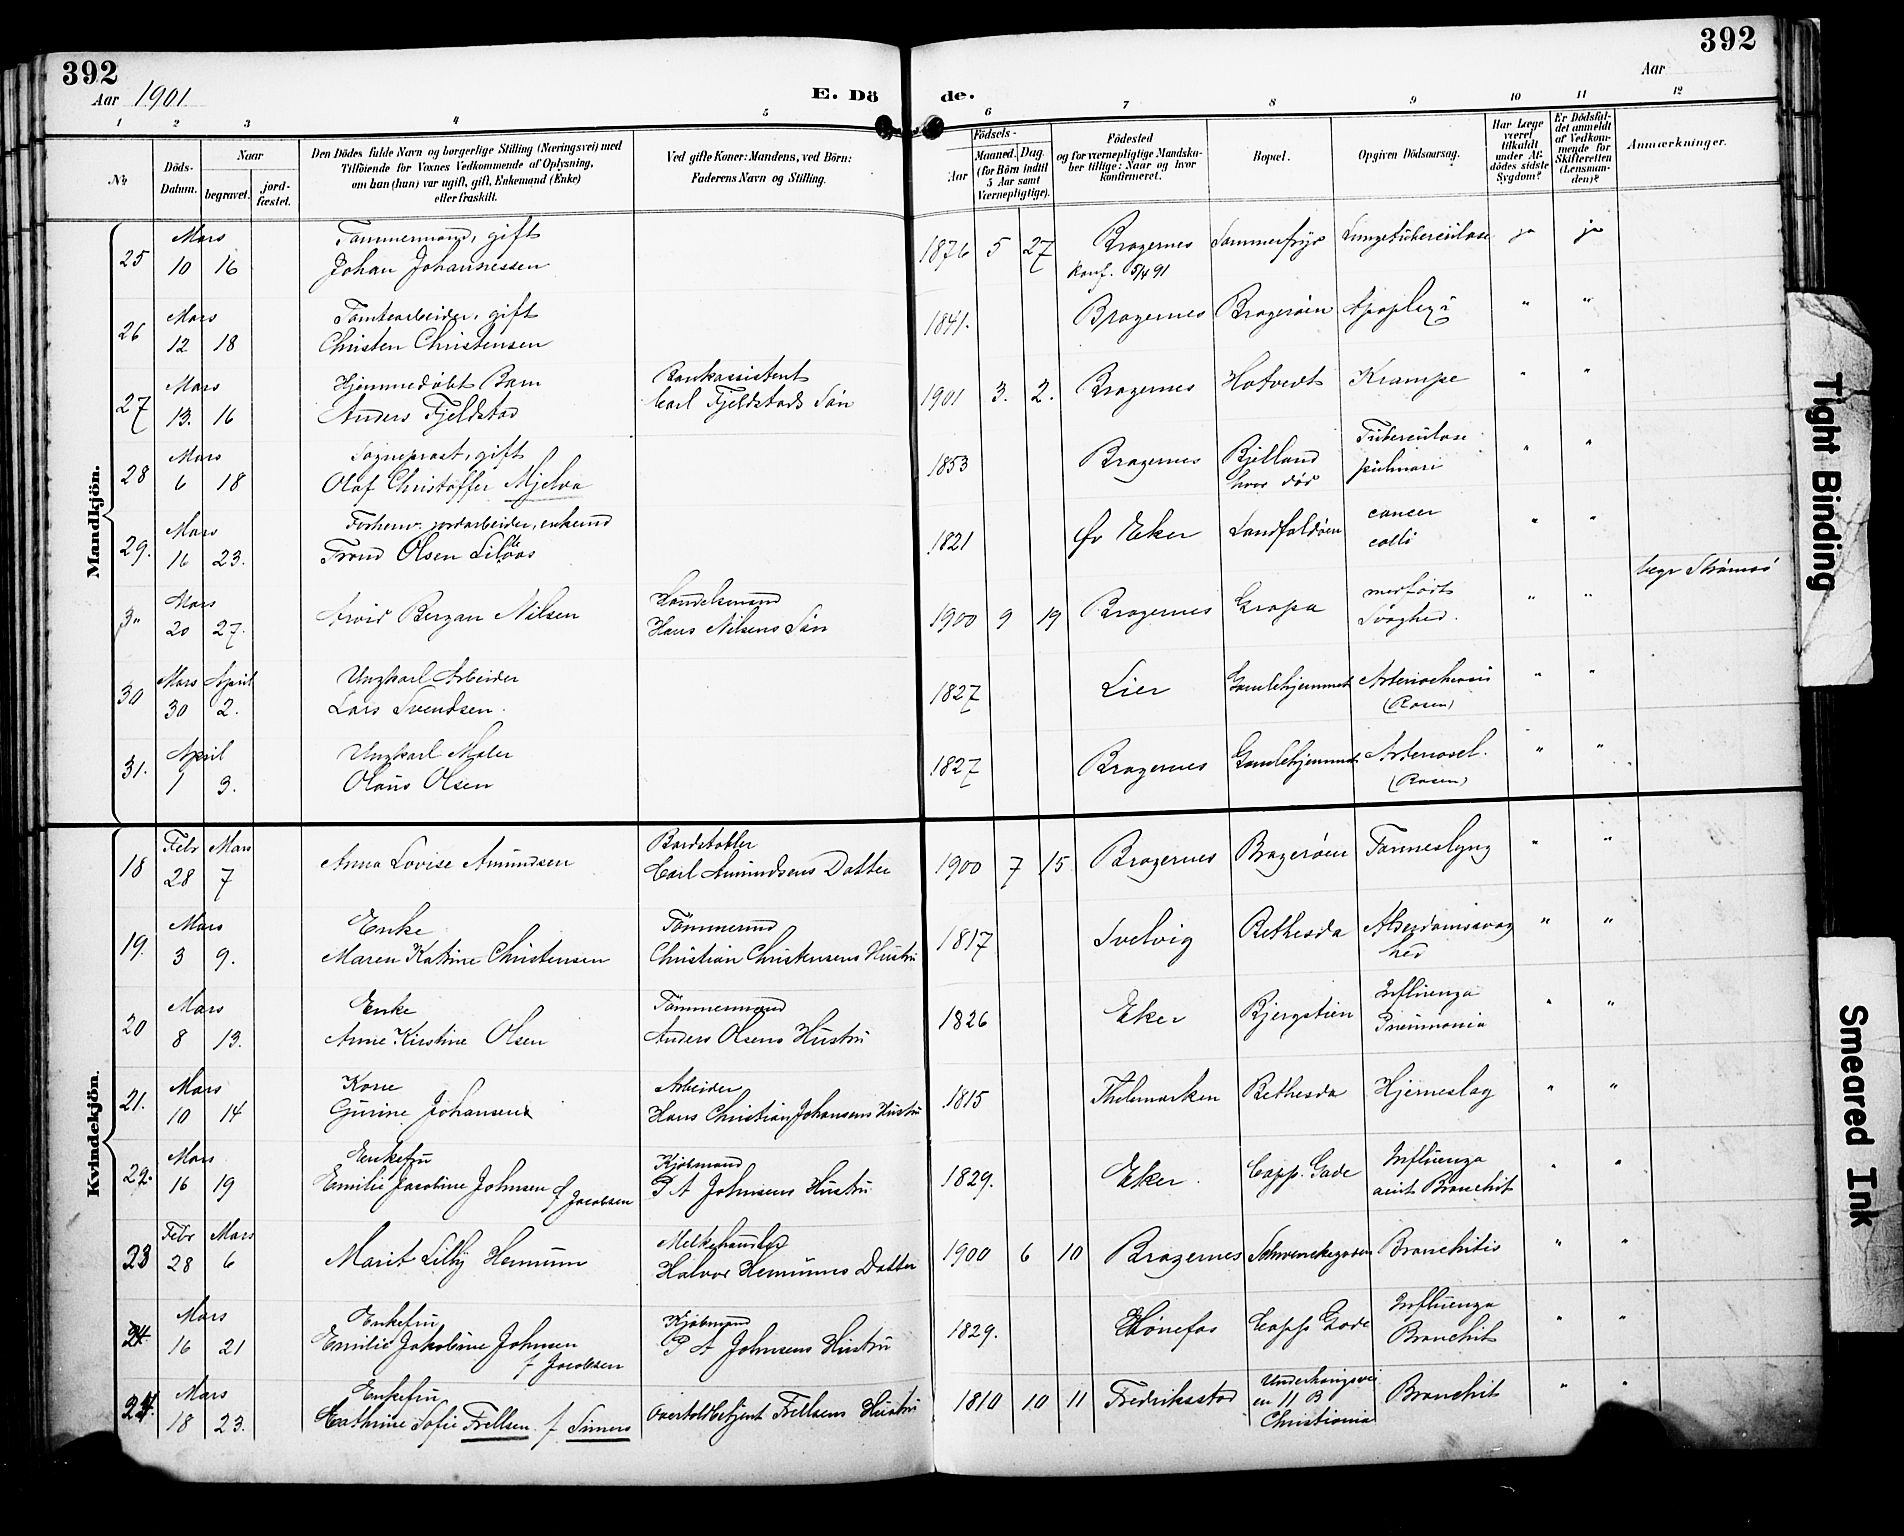 392
392
Aar 1901
E. Dö de.
Aar
1 2 3 4 5 6 7 8 9 10 11 12
No.
Döds-Datum.
Naar
begravet.
jord-fæstet.
Den Dödes fulde Navn og borgerlige Stilling (Næringsvei) med
Tilföiende for Voxnes Vedkommende af Oplysning,
om han (hun) var ugift, gift, Enkemand (Enke)
eller fraskilt.
Ved gifte Koner: Mandens, ved Börn:
Faderens Navn og Stilling.
Födsels-
Aar
Maaned. Dag.
(for Börn indtil
5 Aar samt
Værnepligtige).
Födested
og for værnepligtige Mandska-
ber tillige: Naar og hvor
konfirmeret.
Bopæl.
Opgiven Dödsaarsag.
Har Læge
været
tilkaldt
under Af-
dödes sidste
Sygdom?
Er Dödsfal-
det anmeldt
af Vedkom-
mende for
Skifteretten
(Lensman-
den)?
Anmærkninger.
Mandkjön.
25 Mars 10 16 Tømmermand, gift
Johan Johannessen 1876 5 27 Bragernes Konf. 5/4 91 Sommerfryd Lungetuberculose ja ja
26 Mars 12 18 Tomtearbeider, gift
Christen Christensen 1841. Bragernes Bragerøen Apoplexi " "
27 Mars 13. 16 Hjemmedøbt Barn
Anders Fjeldstad Bankassistent
Carl Fjeldstads Søn 1901 3. 2. Bragernes Hotvedt Krampe " "
28 Mars 6 18 Sogneprest, gift
Olaf Christoffer Mjelva 1853 Bragernes Bjelland
hvor død Tuberculose
pulmari " "
29. Mars 16 23. Forhenv. jordarbeider, enkemd
Trond Olsen 1821 Øv Eker Landfaldøen cancer
colli " "
Mars 20 27. Arvid Bergan Nilsen Handelsmand
Hans Nilsens Søn 1900 9 19 Bragernes Gropa medfødt
Svaghed. " " begr Strømsø
30 Mars 30 April 2. Ungkarl Arbeider
Lars Svendsen. 1827 Lier Gamlehjemmet (Rosen) " "
31. April 1 3. Ungkarl Maler
Olaus Olsen 1827 Bragernes Gamlehjemmet Arterioscl.
(Rosen) " "
Kvindekjön.
18 Febr 28 Mars 7 Anna Lovise Amundsen Bordstabler
Carl Amundsens Datter 1900 7 15 Bragernes Bragerøen " "
19. Mars 3 9. Enke
Maren Katrine Christensen Tømmermd
Christian Christensens Hustru 1817 Svelvig Bethesda Alderdomssvag
hed " "
20 Mars 8 13. Enke
Anne Kirstine Olsen Tømmermand
Anders Olsens Hustru 1826 Eker Bjergstien Influenza
Pneumonia " "
21. Mars 10 14 Kone
Gurine Johansen Arbeider
Hans Christian Johansens Hustru 1815 Thelemarken Bethesda Hjerneslag " "
22. Mars 16 19 Enkefru
Emilie Jacobine Johnsen f Jacobsen Kjøbmand
P A Johnsens Hustru 1829. Eker. Capp. Gade Influenza
acut Bronchit " "
23 Febr 28 Mars 6 Marit Lilly Hemum Melkehandler
Halvor Hemums Datter 1900 6 10 Bragernes Schwenckegaden Bronchitis " "
24 Mars 16 21 Enkefru
Emilie Jakobine Johnsen
f Jacobsen Kjøbmand
P A Johnsens Hustru 1829. Hønefos Capps Gade Influenza
Bronchit " "
24. Mars 18 23. Enkefru
Cathrine Sofie Frellsen f Simers Overtoldbetjent Frellsens Hustru 1810 10 11 Fredriksstad Underhaugsvei
en 11 B
Christiania Bronchit " "
Tight Binding
Smeared Ink